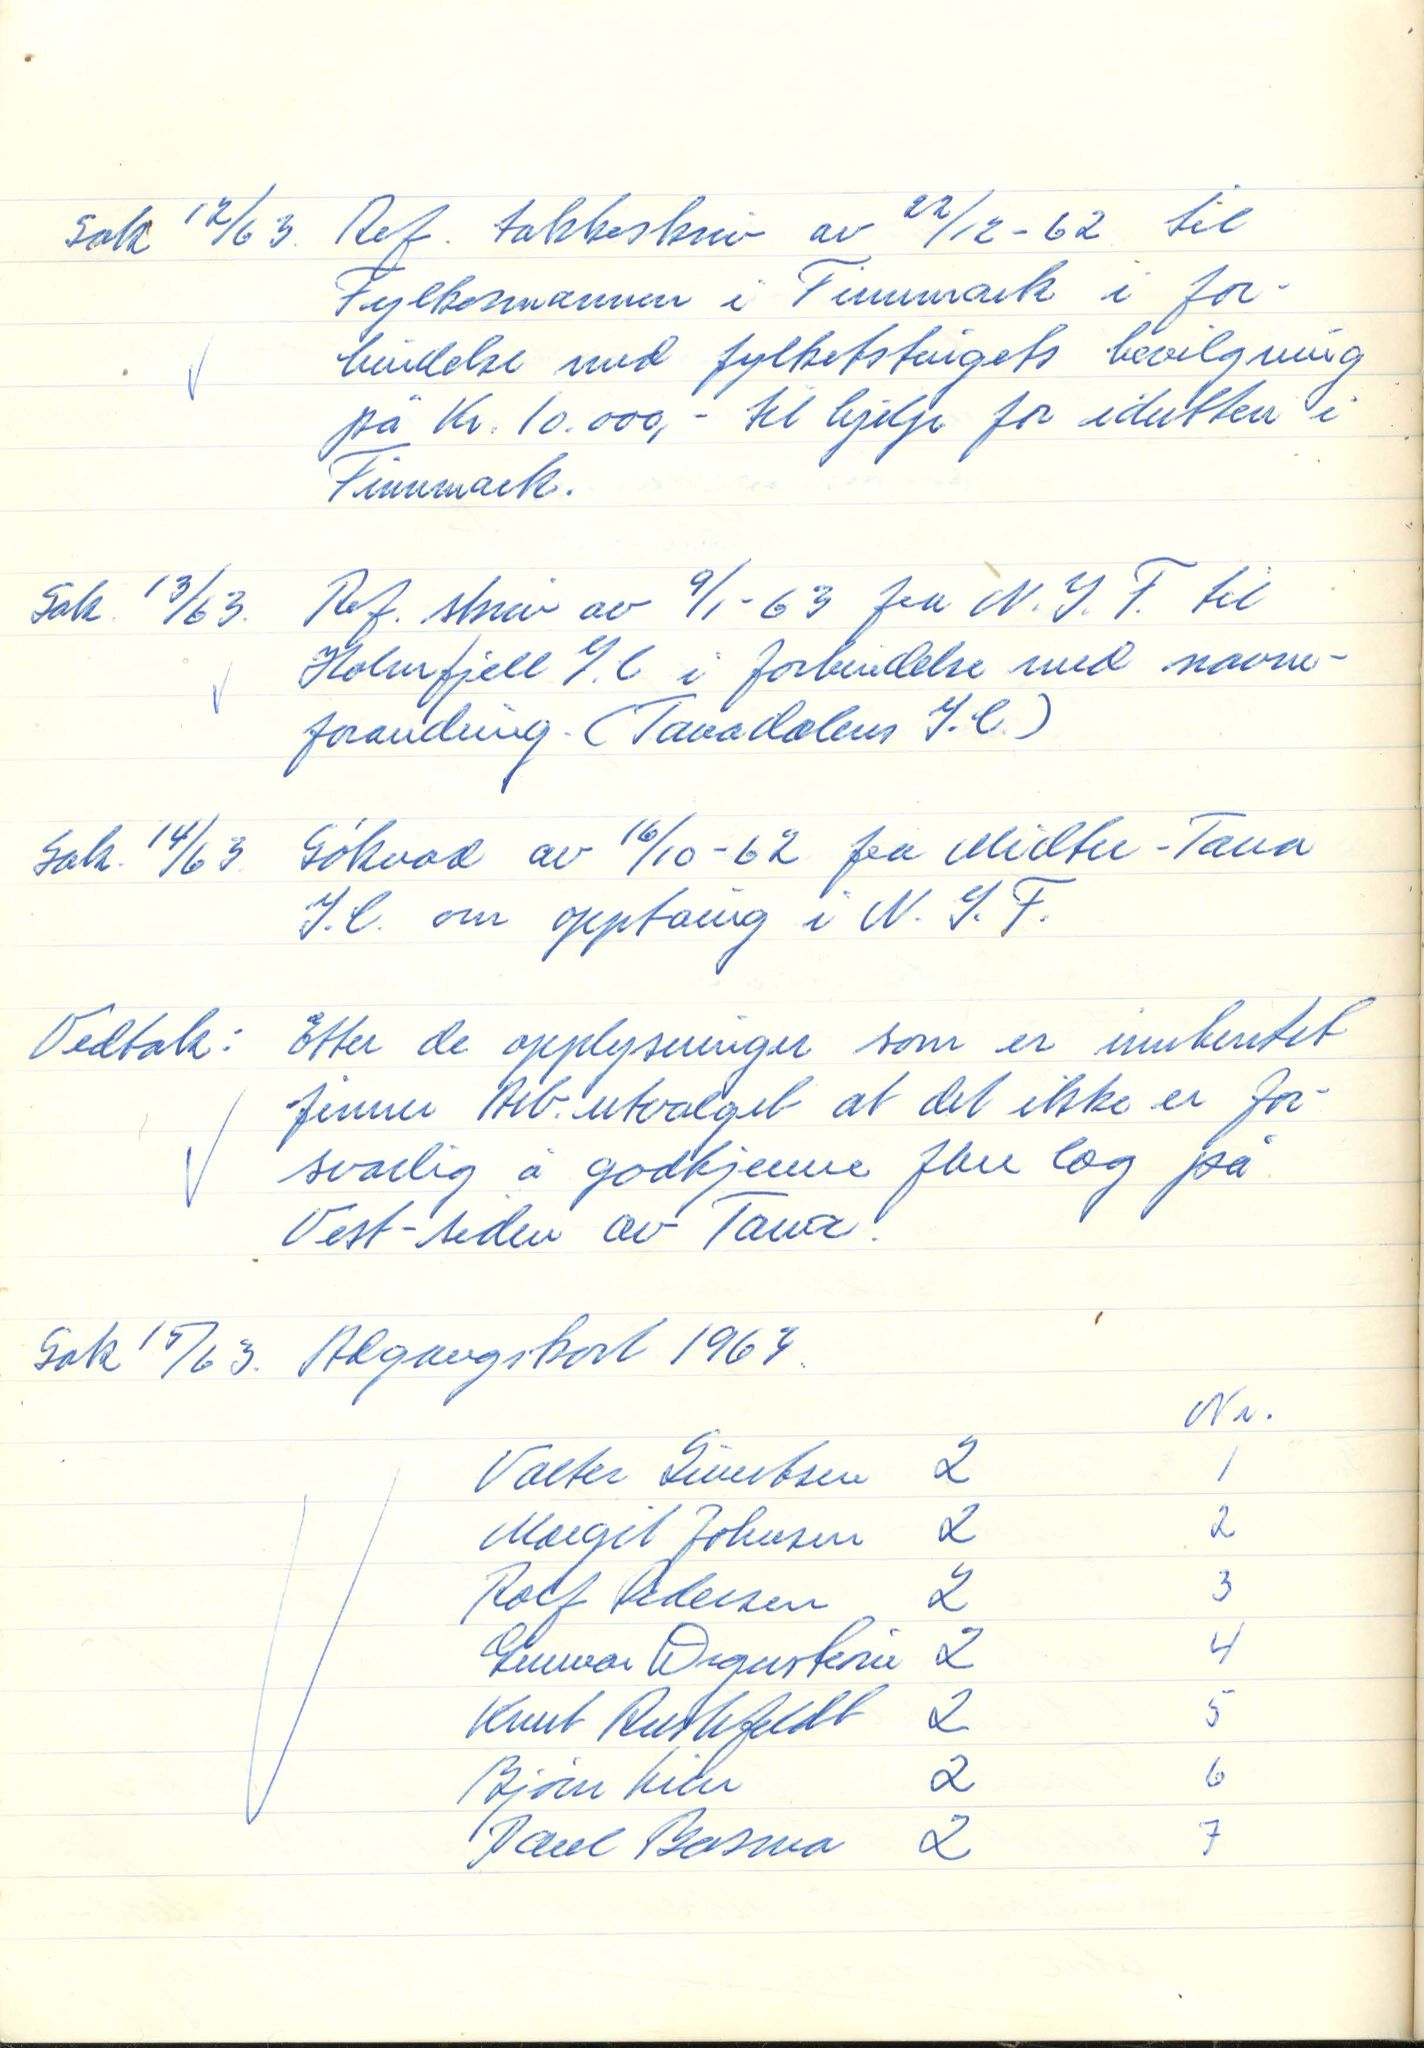 Sak 12/63. Ref. takkeskriv av 22/12-62 til
Fylkesmannen i Finnmark i for-
bindelse med fylketstingets bevilgning
på Kr. 10.000,- til hjelp for idretten i
Finnmark.
Sak. 13/63. Ref. skriv av 9/1-63 fra N.I.F. til
Holmfjell I.l i forbindelse med navne-
forandring. (Tanadalens I.l.)
Sak. 14/63 Søknad av 16/10-62 fra Midtre-Tana
I.l. om opptaing i N.I.F.
Vedtak: Etter de opplysninger som er innhentet
finner Arb.utvalget at det ikke er for-
svarlig å godkjenne flere lag på
Vest-siden av Tana.
Sak 15/63. Adgangskort 1963.
Nr.
Valter Sivertsen 2 1
Margit Johnsen 2 2
Rolf Pedersen 2 3
Gunnar 2 4
Knut Rushfeldt 2 5
Bjørn Lien 2 6
Paul Basma 2 7